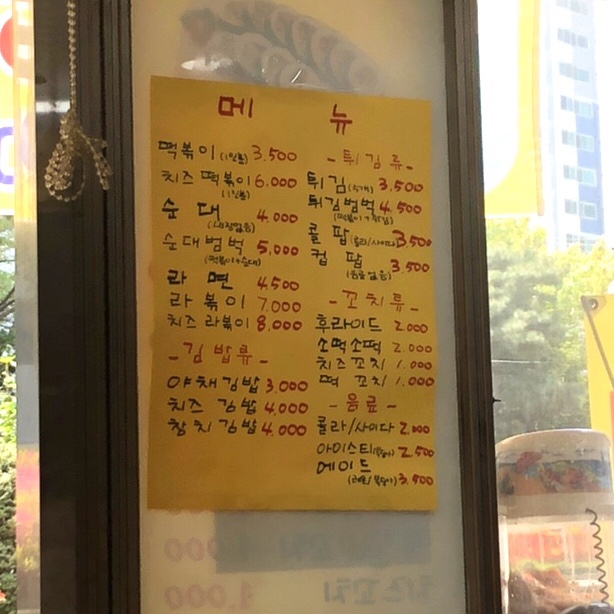 메 뉴
떡볶이 (1인분) 3.500
치즈 떡볶이 6.000
(1인분)
순 대 4.000
(내장없음)
순대범벅 5,000
(떡볶이+순대)
라 면 4,500
라 볶이 7,000
치즈 라볶이 8,000
- 김밥류 -
야채김밥 3,000
치즈 김밥 4,000
참치김밥 4,000
- 튀김류 -
튀김 3.500
튀김범벅 4.500
(떡볶이+튀김)
콜 팝 (콜라/사이다) 3.500
컵 팝 3.500
(음료 없음)
- 꼬치류 -
후라이드 2.000
소떡소떡 2.000
치즈꼬치 1.000
떡 꼬치 1.000
- 음료 -
콜라/사이다 2.000
아이스티 (복숭아) 2.500
에이드
3.500